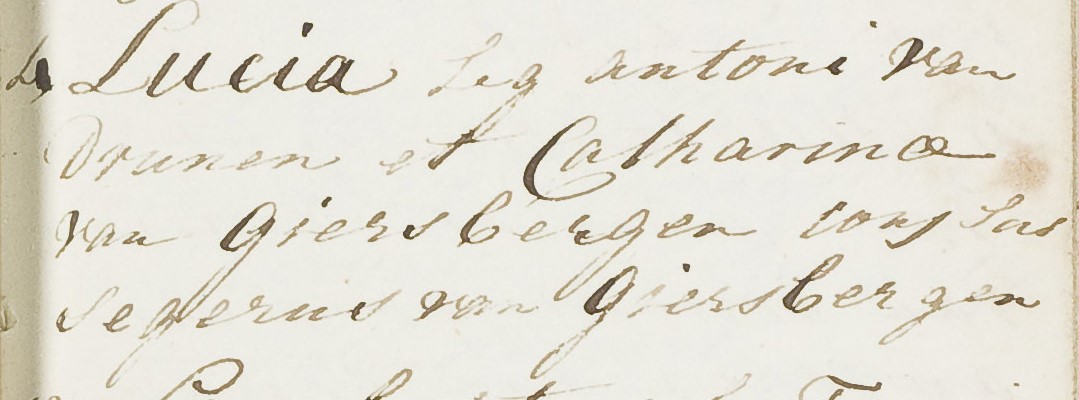 Lucia Leg antoni van
Drunen et Catharinæ
van Giersbergen conj Sus
segerus van Giersbergen